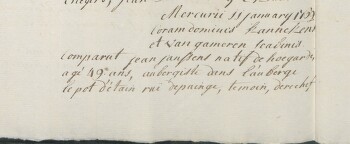 Mercurii 11 january 1735
coram dominis Kannekens
et van gameren scabinis
comparuit jean janssens natif de hoegarde
agé 49 ans, aubergiste dans l'auberge
le pot d'étain rue de painge, temoin, derechef